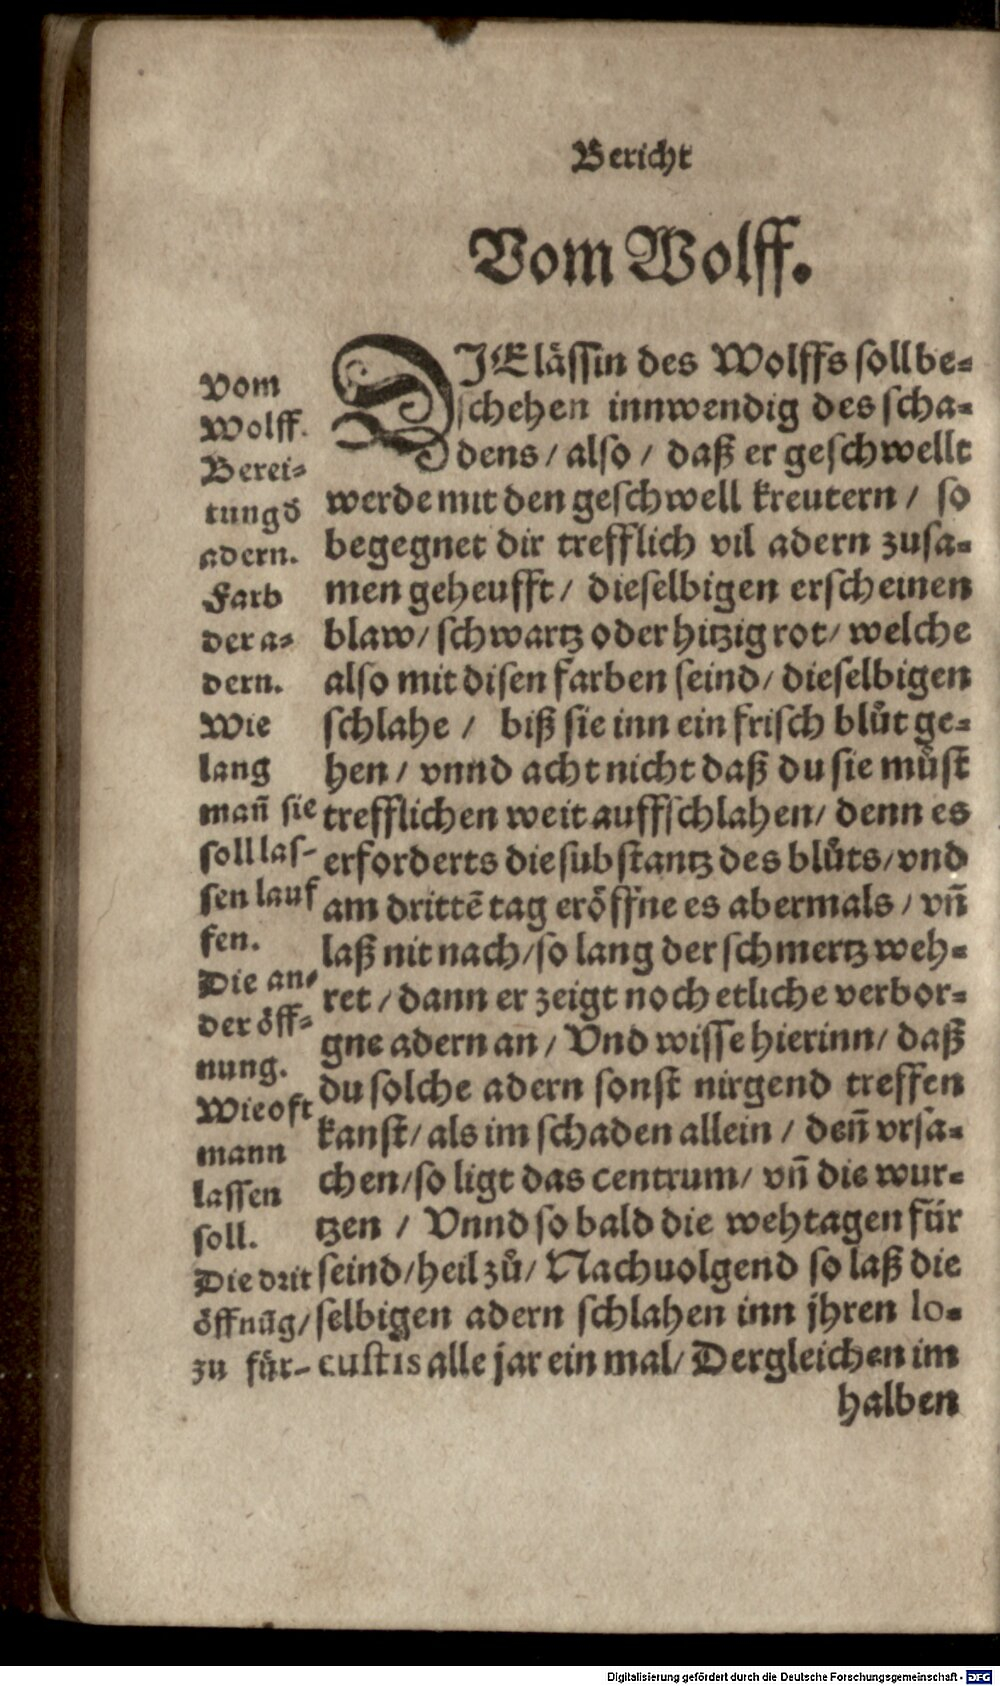 Bericht
Vom Wolff.
Vom
Wolff.
Berei-
tung d̕
adern.
Farb
der a-
dern.
Wie
lang
mañ sie
soll las-
sen lauf
fen.
Die an-
der öff-
nung.
Wie oft
mann
lassen
soll.
Die drit
öffnũg/
zu für-
DIE lässin des Wolffs soll be-
schehen innwendig des scha-
dens / also / daß er geschwellt
werde mit den geschwell kreutern / so
begegnet dir trefflich vil adern zusa-
men geheufft / dieselbigen erscheinen
blaw / schwartz oder hitzig rot / welche
also mit disen farben seind / dieselbigen
schlahe / biß sie inn ein frisch blůt ge-
hen / vnnd acht nicht daß du sie můst
trefflichen weit auffschlahen / denn es
erforderts die substantz des blůts / vnd
am drittẽ tag eröffne es abermals / vñ
laß nit nach / so lang der schmertz weh-
ret / dann er zeigt noch etliche verbor-
gne adern an / Vnd wisse hierinn / daß
du solche adern sonst nirgend treffen
kanst / als im schaden allein / deñ vrsa-
chen / so ligt das centrum / vñ die wur-
tzen / Vnnd so bald die wehtagen für
seind / heil zů / Nachuolgend so laß die
selbigen adern schlahen inn jhren lo-
custis alle jar ein mal / Dergleichen im
halben
Digitalisierung gefördert durch die Deutsche Forschungsgemeinschaft - DFG